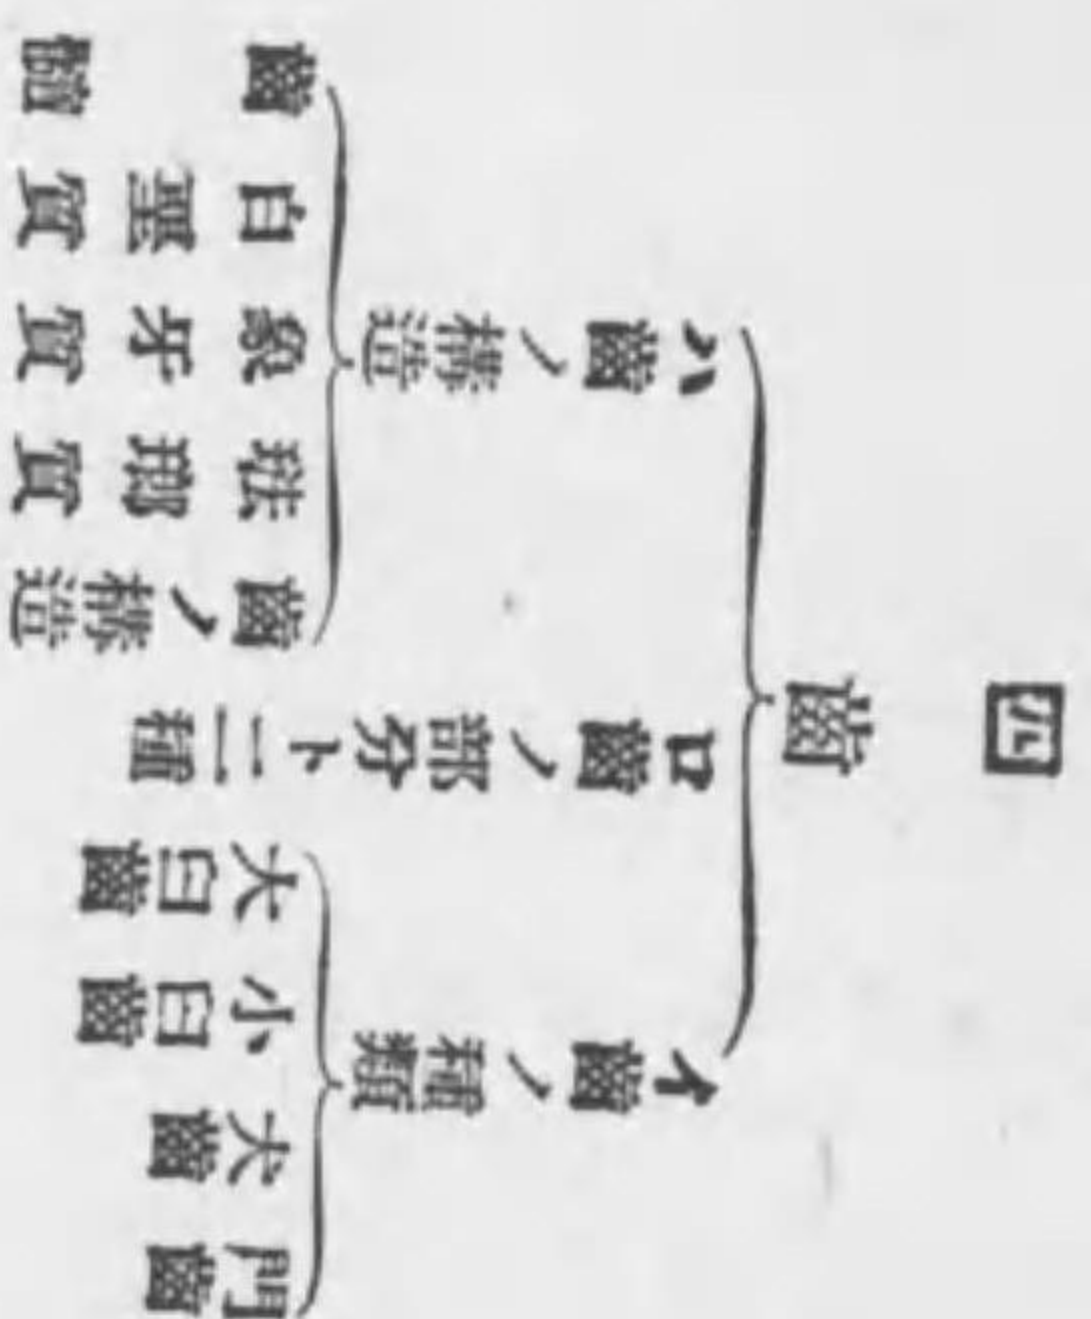 四
齒
イ齒ノ種類
門齒
犬齒
小臼齒
大臼齒
ロ齒ノ部分ト二種
ハ齒ノ構造
齒ノ構造
琺瑯質
象牙質
白堊質
齒髓